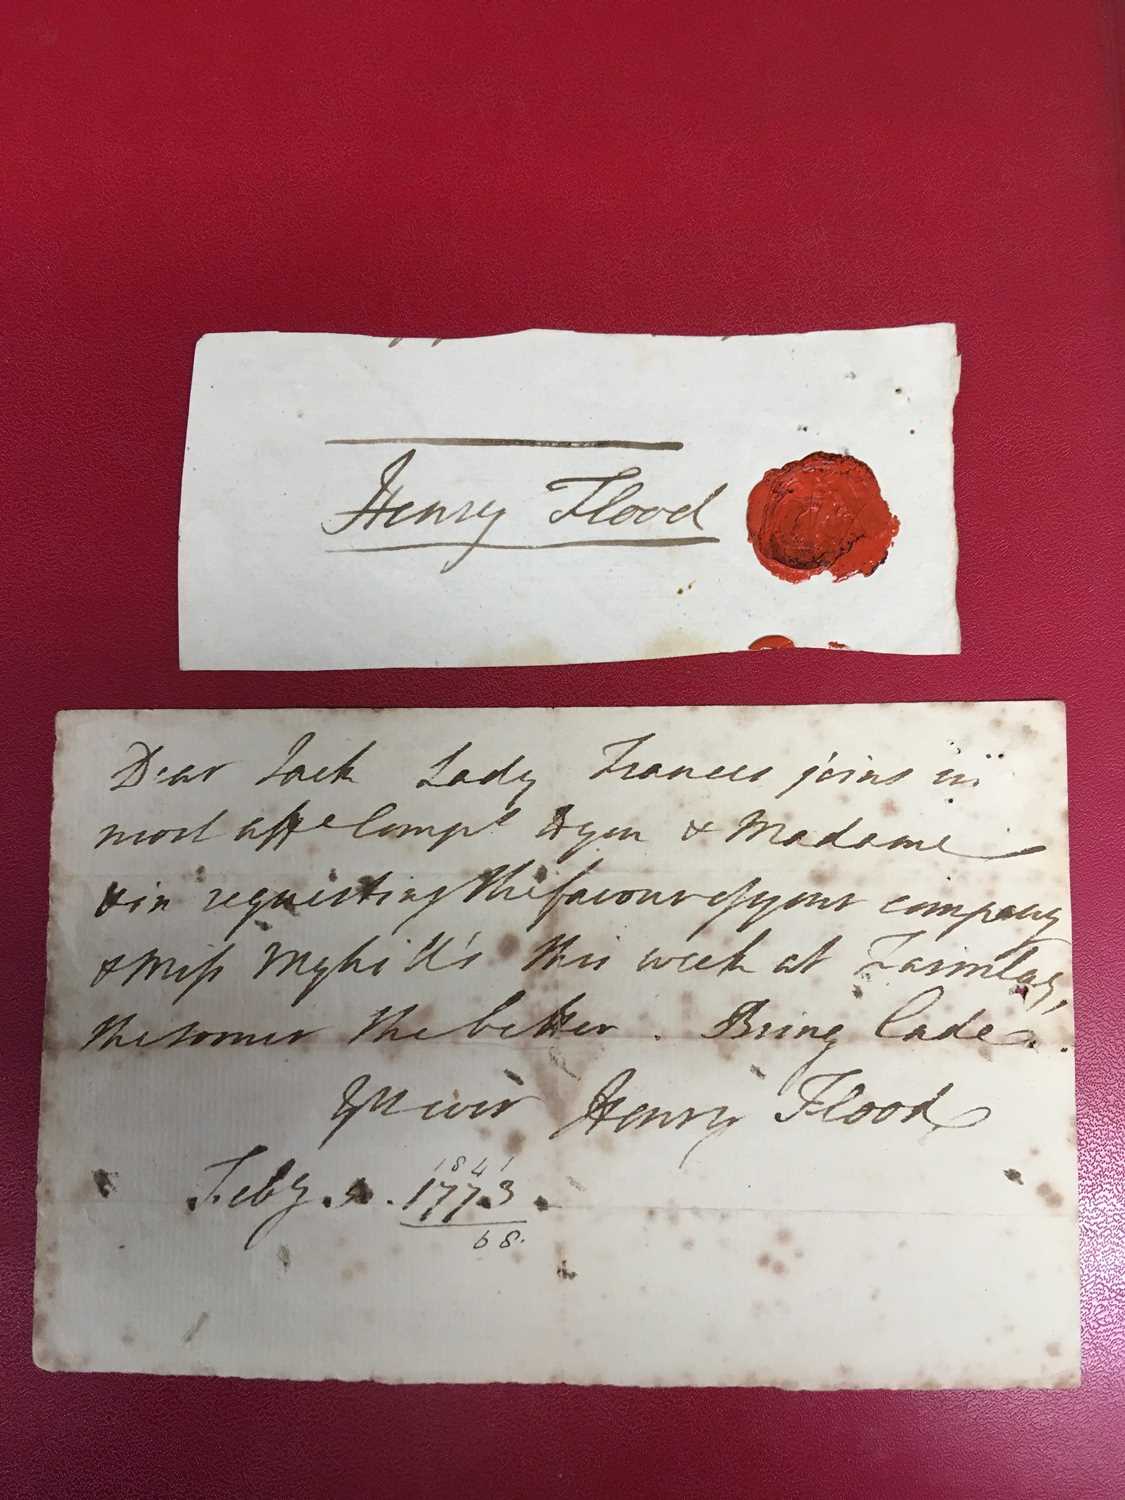 Henry Flood
Dear Jack Lady Frances joins in
most affte Compts to you & Madame
& in requesting the favour of your company
& Miss this week at Farmley,
the sooner the better. Bring Cade.
Yrs ever Henry Flood
1841
Feby. . 1773
68.